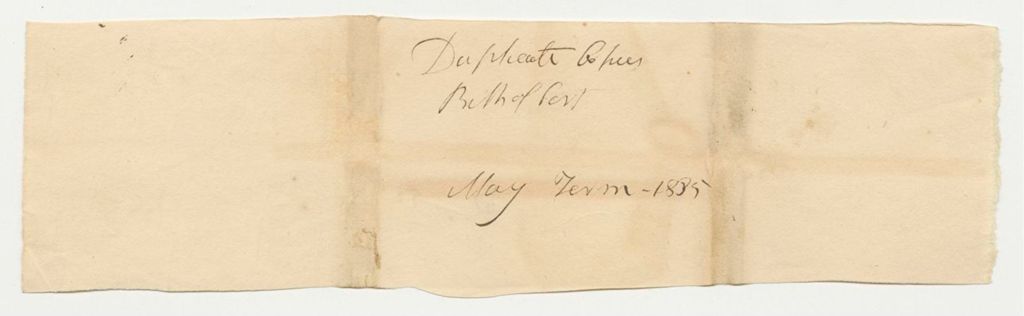 Duplicate Copies
Bills of Cost
May Term - 1835